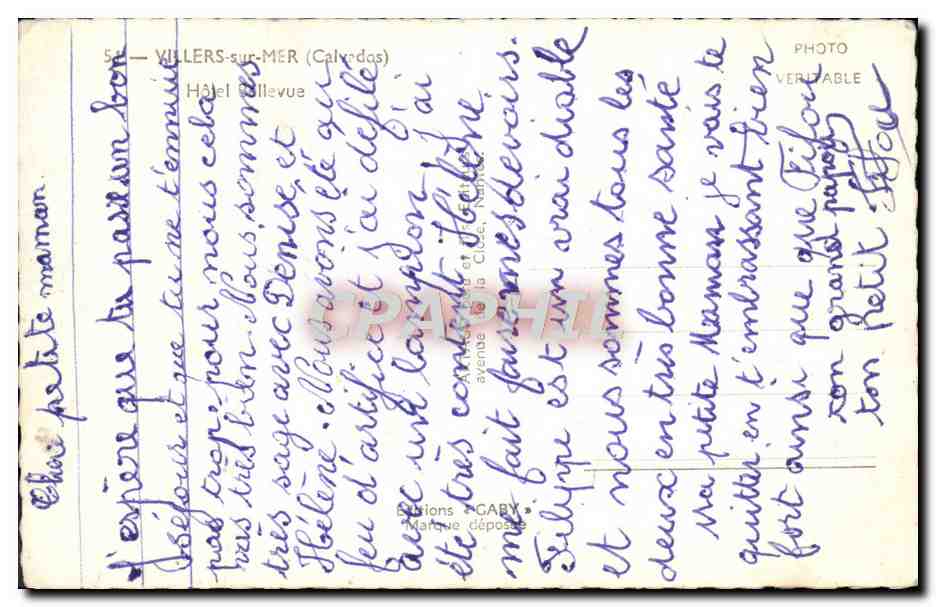 54 — VILLERS-sur-MER (Calvados)
Hôtel Bellevue
PHOTO
VERITABLE
Chère petite maman
j'espère que tu passe un bon
séjour et que tu ne t'ennuie
pas trop, pour nous cela
vas très bien. Nous sommes
très sage avec Denise et
Hélène. Nous avons été au
feu d'artifice et j'ai défilé
avec un lampion j'ai
été très content. Hélène
mi fait faire mes devoirs.
Felippe est un vrai diable
et nous sommes tous les
deux en très bonne santé
Ma petite Maman je vais te
quitter en t'embrassant bien
fort ainsi que Fifou
ton grand papou
ton petit
Editions « GABY »
Marque déposée
avenue de la Close, Nantes
CPAPHIL